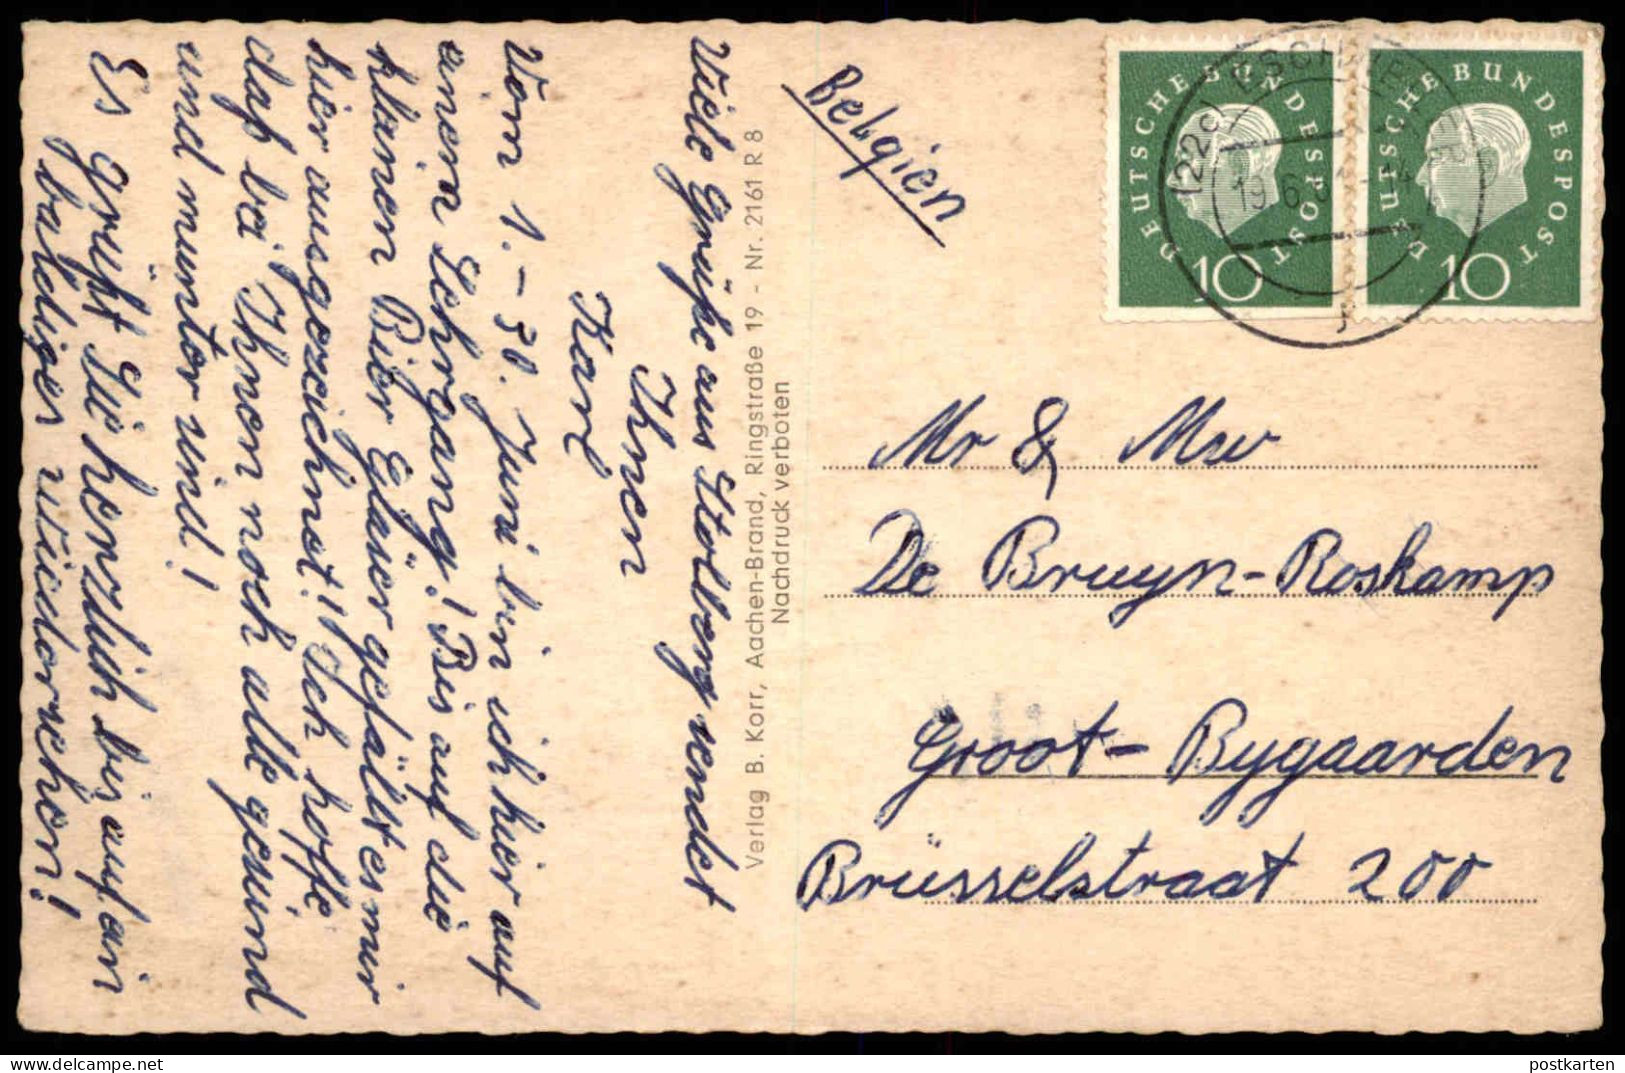 Viele Grüße aus Stolberg sendet
Ihnen
Karl
Vom 1.-30. Juni bin ich hier auf
einem Lehrgang! Bis auf die
kleinen Bier Gläser gefällt es mir
hier ausgezeichnet! Ich hoffe
daß bei Ihnen noch alle gesund
und munter sind!
Es grüßt Sie herzlich bis auf ein
baldiges Wiedersehen!
Verlag B. Korr, Aachen-Brand, Ringstraße 19 - Nr. 2161 R 8
Nachdruck verboten
Belgien
DEUTSCHE BUNDESPOST
10
DEUTSCHE BUNDESPOST
10
(22c)
19.6.
Mr & Mw
De Bruyn-Roskamp
Groot-Bygaarden
Brüsselstraat 200
postkarten